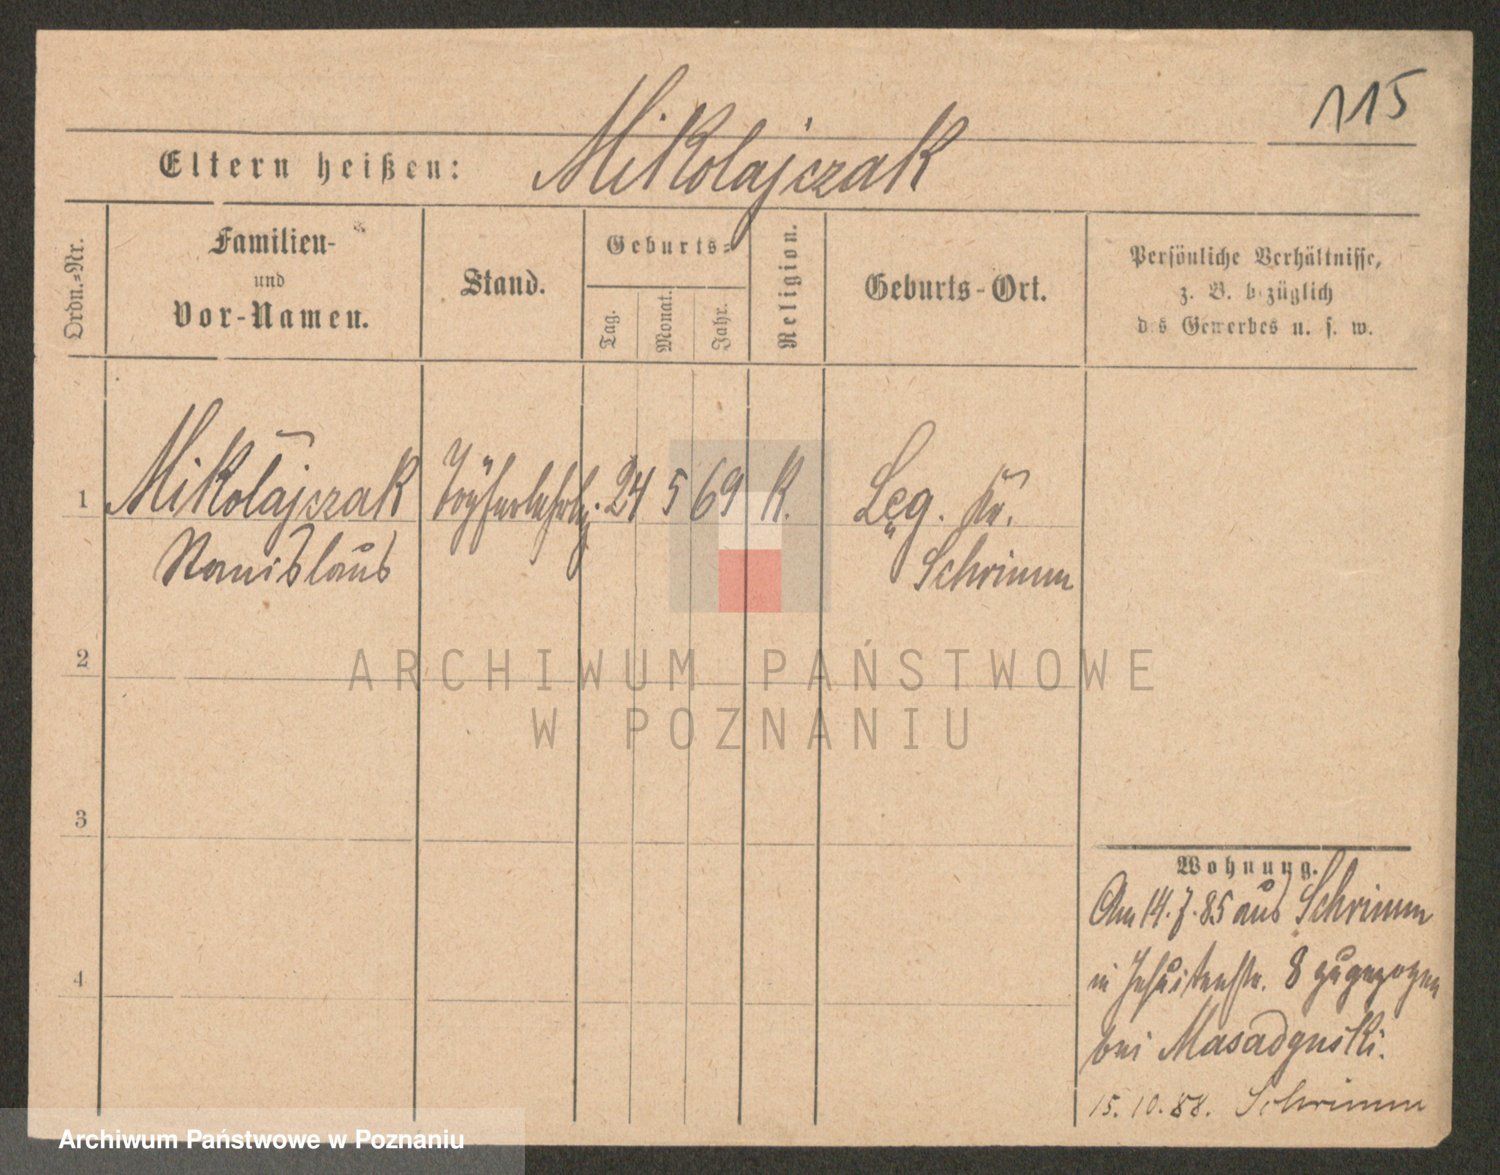 115
Eltern heißen: Mikolajczak
Ordn.-Nr.
Familien-
und
Vor-Namen.
Stand.
Geburts-
Tag.
Monat.
Jahr.
Religion.
Geburts-Ort.
Persönliche Verhältnisse,
z. B. bezüglich
des Gewerbes u. s. w.
1 Mikolajczak Töpferlehrlg. 24 5 69 K. Leg. Kr.
Stanislaus Schrimm
ARCHIWUM PAŃSTWOWE
W POZNANIU
2
3
4
Wohnung.
Am 14.7.85 aus Schrimm
in Jesuitenstr. 8 zugezogen
bei
15.10.88. Schrimm
Archiwum Państwowe w Poznaniu